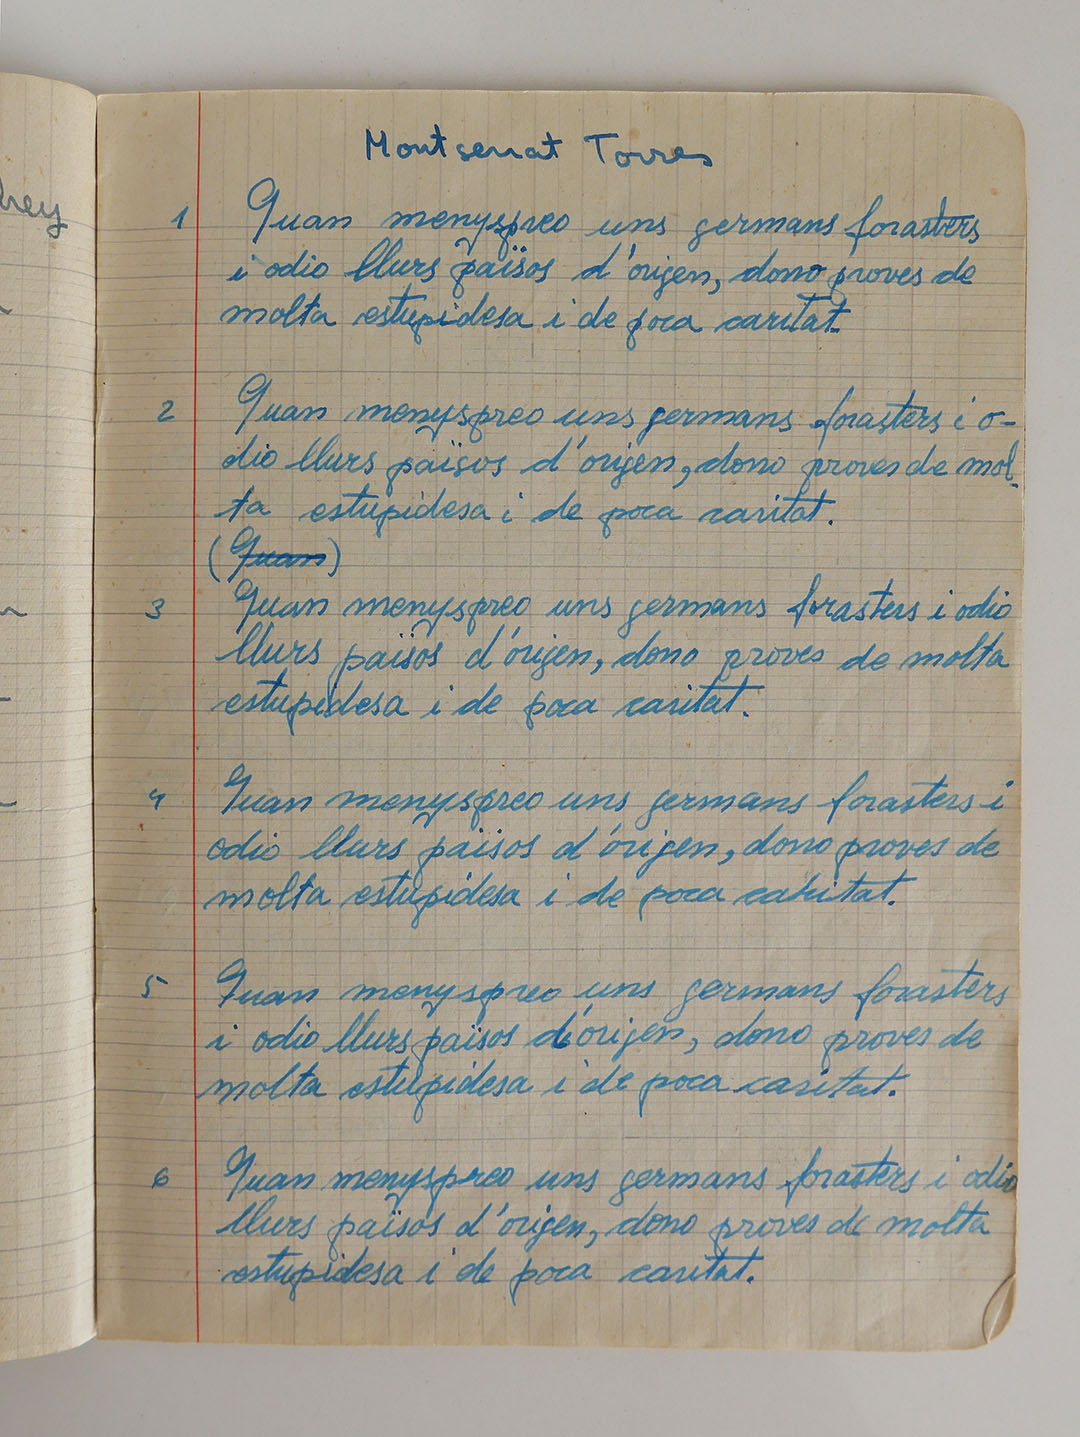 Montserrat Torres
hey
1 Quan menyspreo uns germans forasters
i odio llurs països d'origen, dono proves de
molta estupidesa i de poca caritat.
2 Quan menyspreo uns germans forasters i o-
dio llurs països d'origen, dono proves de mol-
ta estupidesa i de poca caritat.
(Quan)
3 Quan menyspreo uns germans forasters i odio
llurs països d'origen, dono proves de molta
estupidesa i de poca caritat.
4 Quan menyspreo uns germans forasters i
odio llurs països d'origen, dono proves de
molta estupidesa i de poca caritat.
5 Quan menyspreo uns germans forasters
i odio llurs països d'origen, dono proves de
molta estupidesa i de poca caritat.
6 Quan menyspreo uns germans forasters i odio
llurs països d'origen, dono proves de molta
estupidesa i de poca caritat.